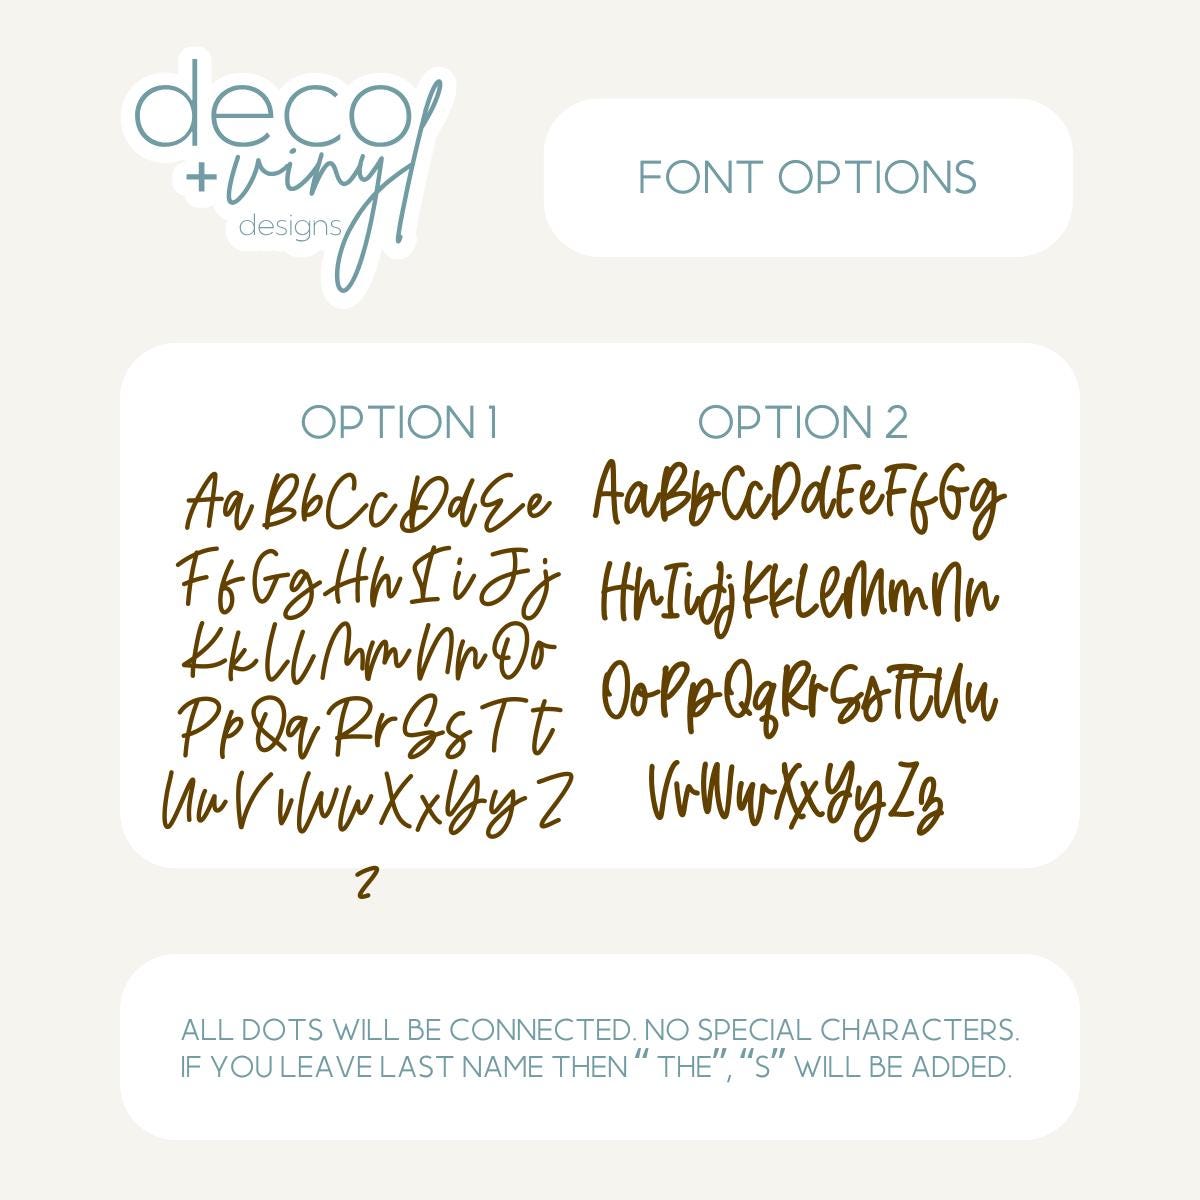 deco
+vinyl
designs
FONT OPTIONS
OPTION 1
Aa Bb Cc Dd Ee
Ff Gg Hh Ii Jj
Kk Ll Mm Nn Oo
Pp Qq Rr Ss Tt
Uu Vv Ww Xx Yy Z
z
OPTION 2
AaBbCcDdEeFfGg
HhIiJjKkLlMmNn
OoPpQqRrSsTtUu
VvWwXxYyZz
ALL DOTS WILL BE CONNECTED. NO SPECIAL CHARACTERS.
IF YOU LEAVE LAST NAME THEN “ THE”, “S” WILL BE ADDED.